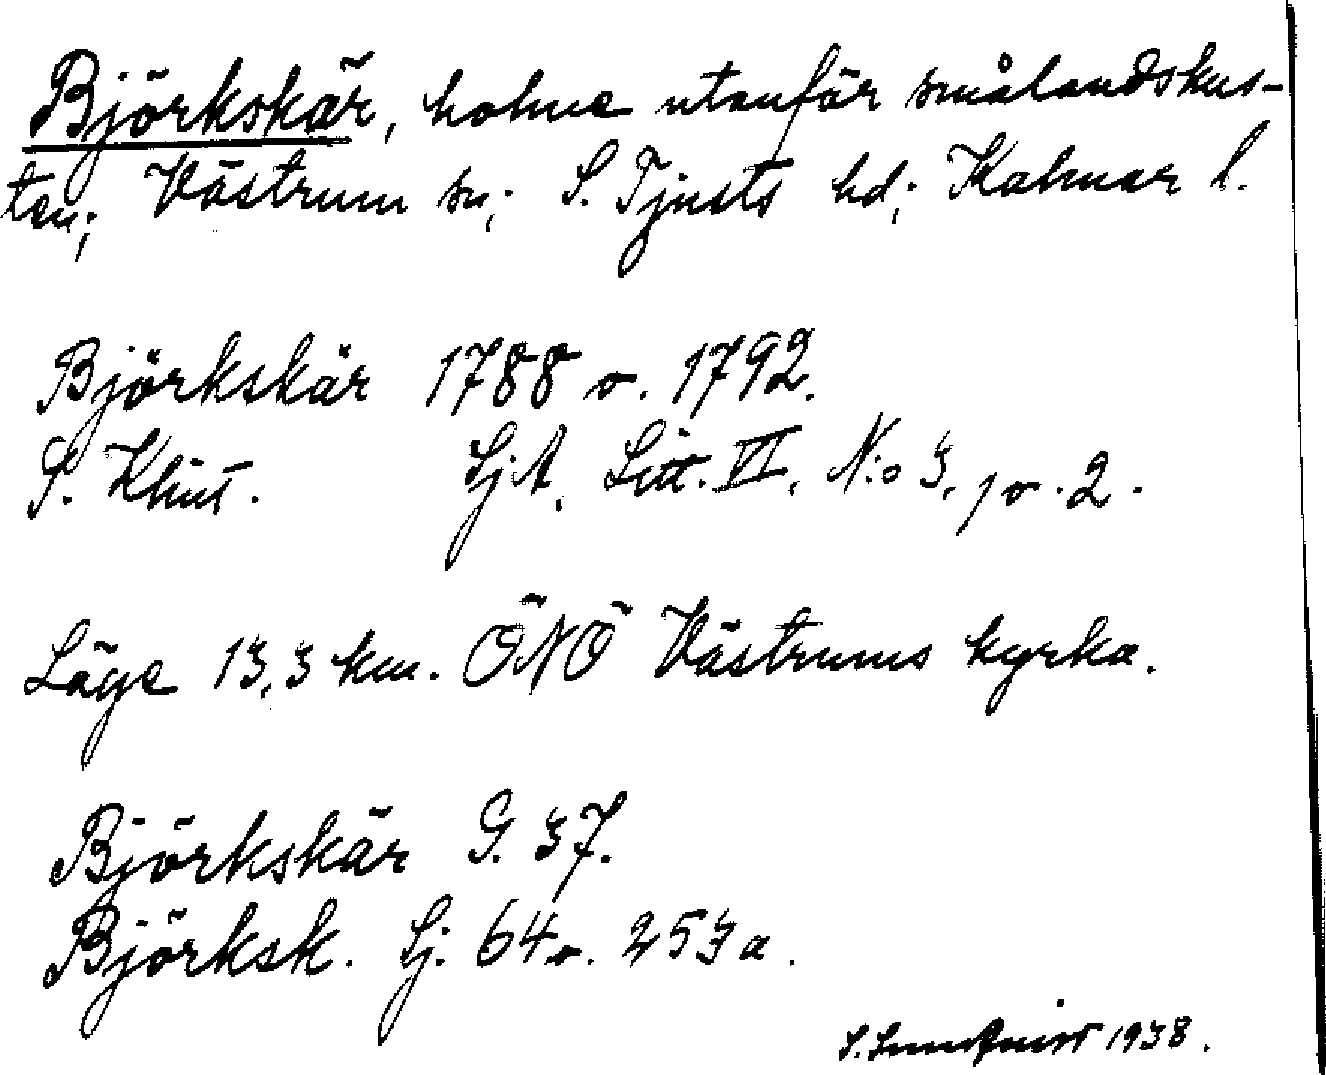 Björkskär, holme utanför smålandskus-
ten; Västrum sn; S. Tjusts hd; Kalmar l.
Björkskär 1788 o. 1792.
S. Klint. SjA, Litt. VI, N:o 3, 1 o. 2.
Läge 13,3 km. ÖNÖ Västrums kyrka.
Björkskär G. 37.
Björksk. Sj. 64 o. 253 a.
1938.